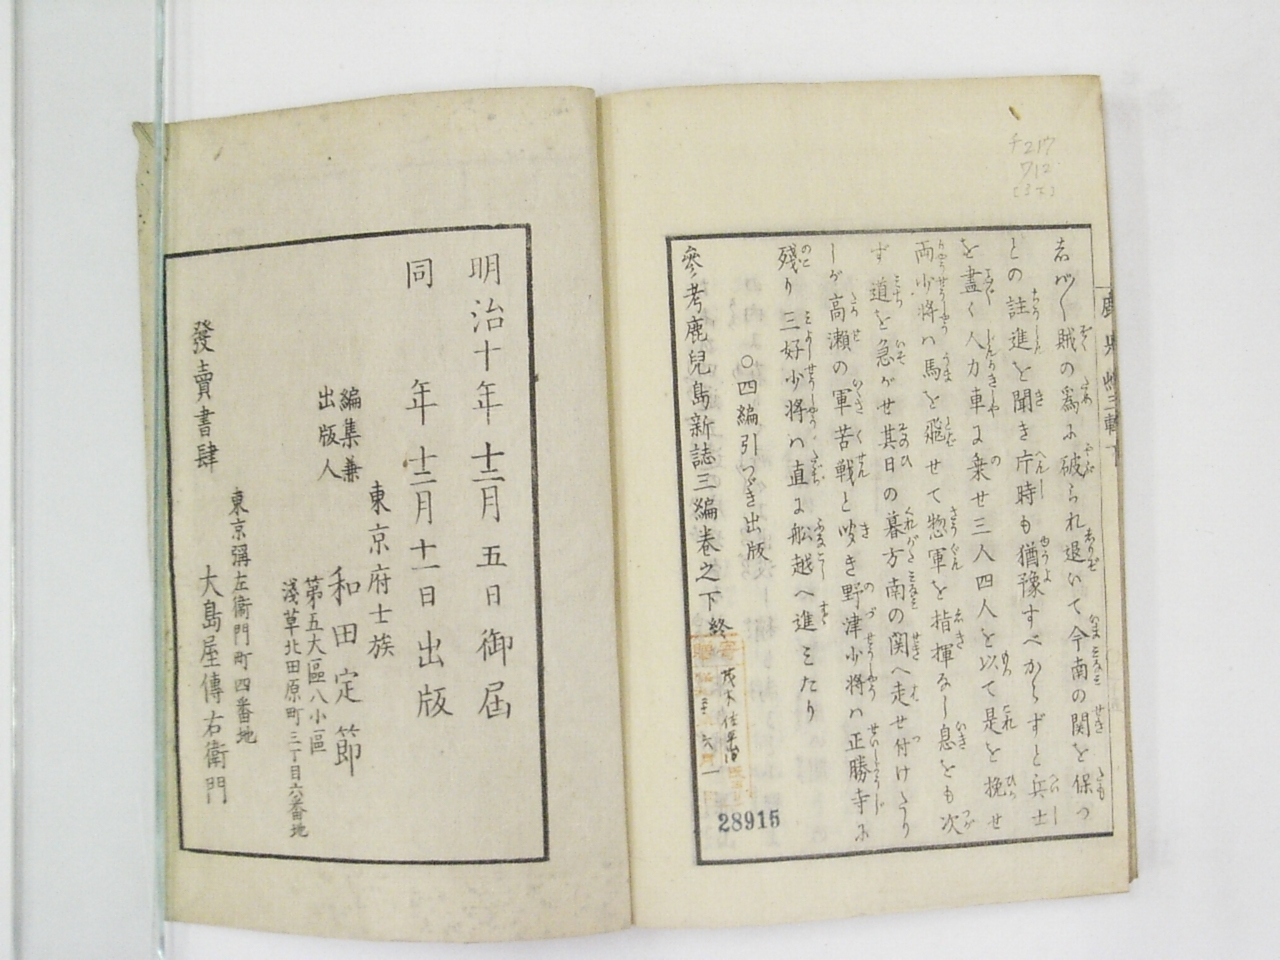 志ばし賊の為に破られ退いて今南の関を保つ
との註進を聞き片時も猶豫すべからずと兵士
を盡く人力車に乗せ三人四人を以て是を挽せ
両少将ハ馬を飛せて惣軍を指揮なし息をも次
ず道を急がせ其日の暮方南の関へ走せ付けたり
しが高瀬の軍苦戦と聞き野津少将ハ正勝寺に
残り三好少将ハ直に船越へ進みたり
○四編引つゞき出版
參考鹿兒島新誌三編巻之下終
28915
明治十年十二月五日御届
同年十二月十一日出版
東京府士族
編集兼
出版人
和田定節
第五大區八小區
淺草北田原町三丁目六番地
東京彌左衞門町四番地
發賣書肆
大島屋傳右衞門